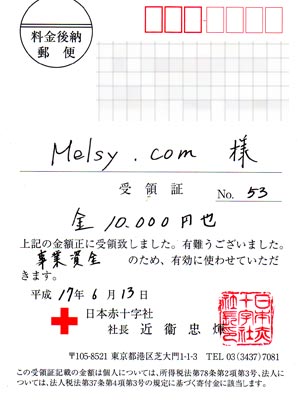 料金後納
郵便
Melsy.com 様
受領証
No. 53
金 10.000円也
上記の金額正に受領致しました。有難うございました。
事業資金 のため、有効に使わせていただ
きます。
平成 17年 6月 13日
日本赤十字社
社長 近衞忠煇
日本赤
十字社
社長印
〒105-8521 東京都港区芝大門1-1-3 TEL 03(3437)7081
この受領証記載の金額は個人については、所得税法第78条第2項第3号、法人につ
いては、法人税法第37条第4項第3号の規定に基づく寄付金に該当します。